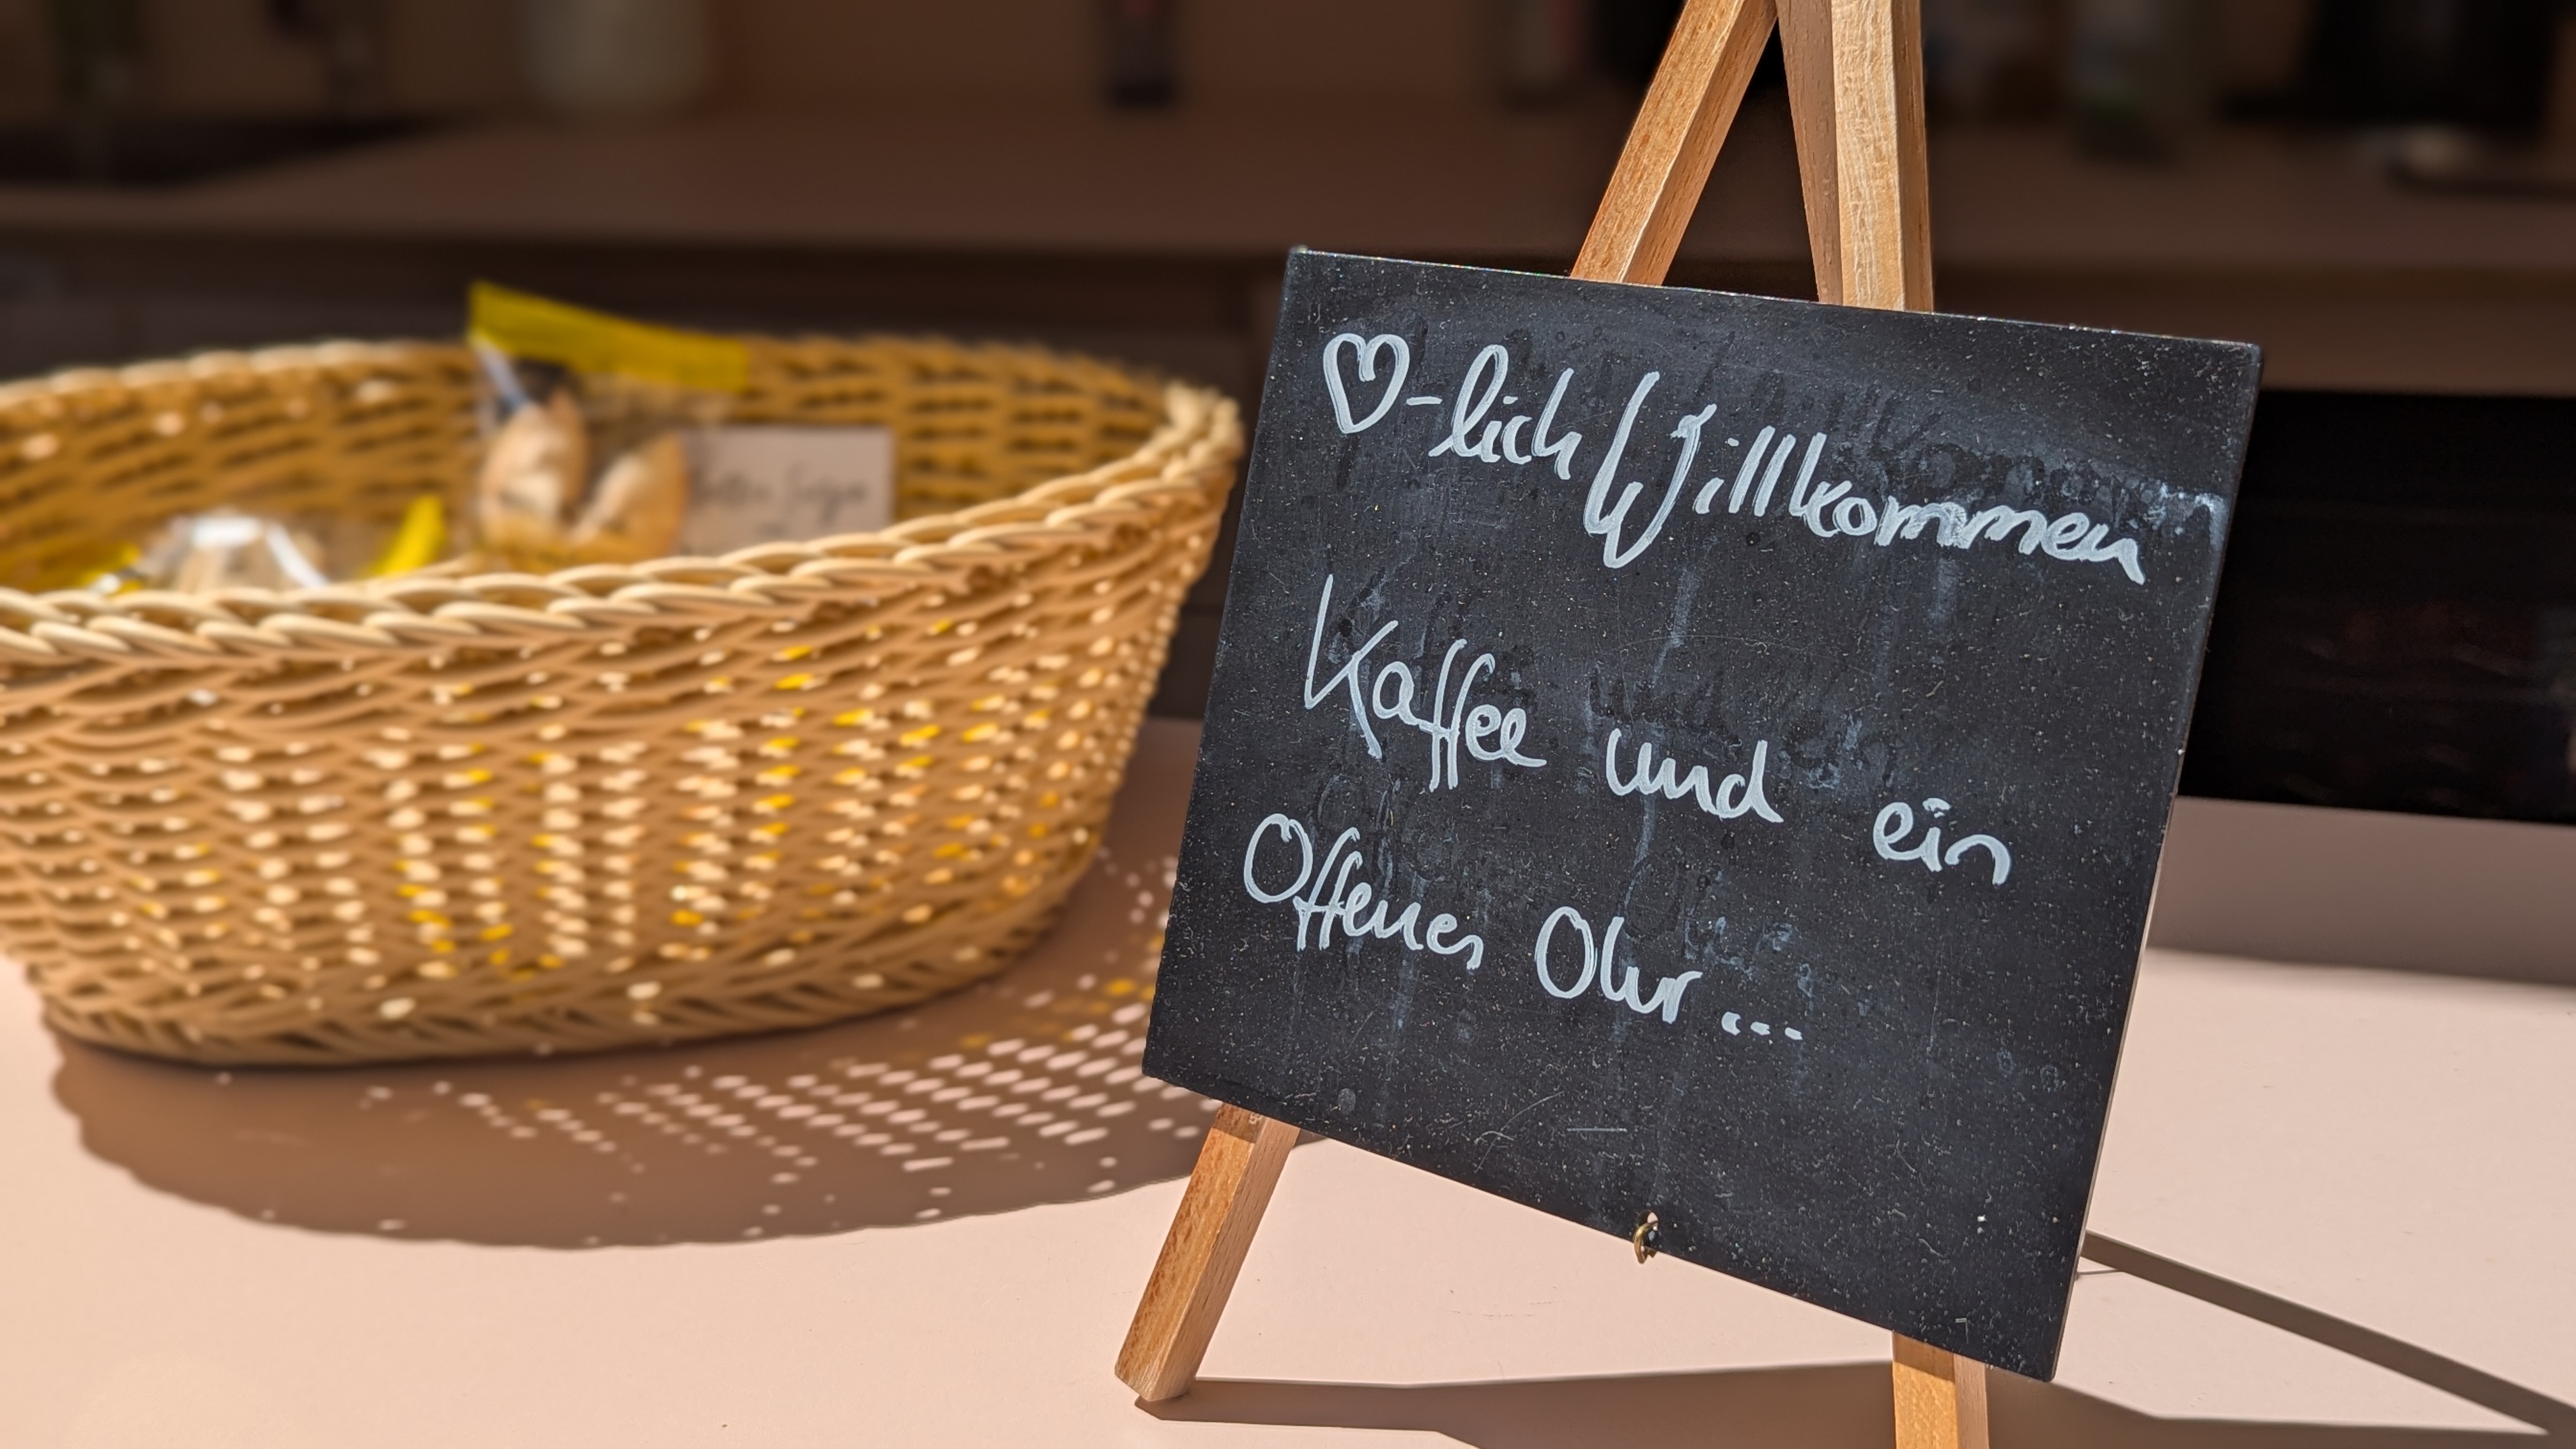 ♡-lich Willkommen
Kaffee und ein
Offenes Ohr...